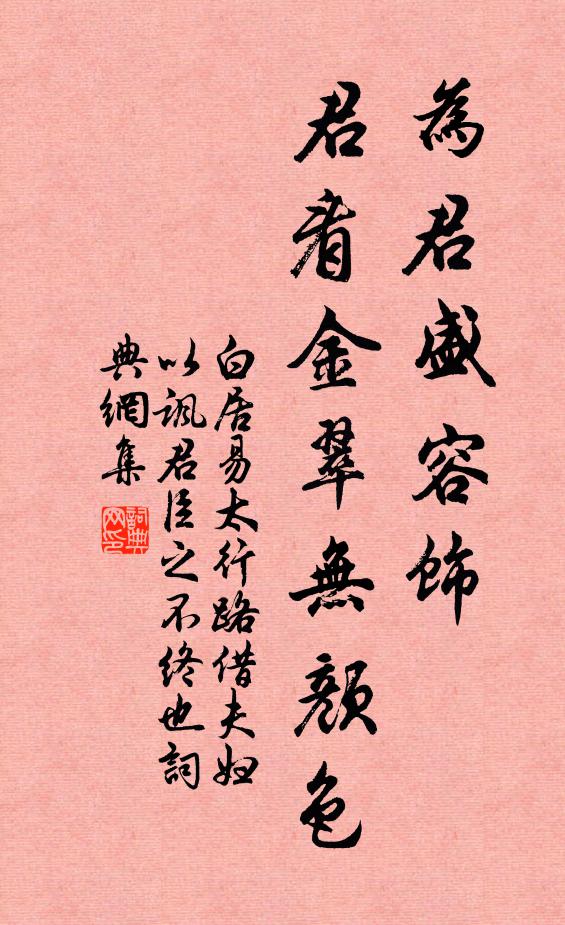 為君盛容飾
君看金翠無顏色
白居易太行路借夫婦
以諷君臣之不終也詞
典網集
詞典网印